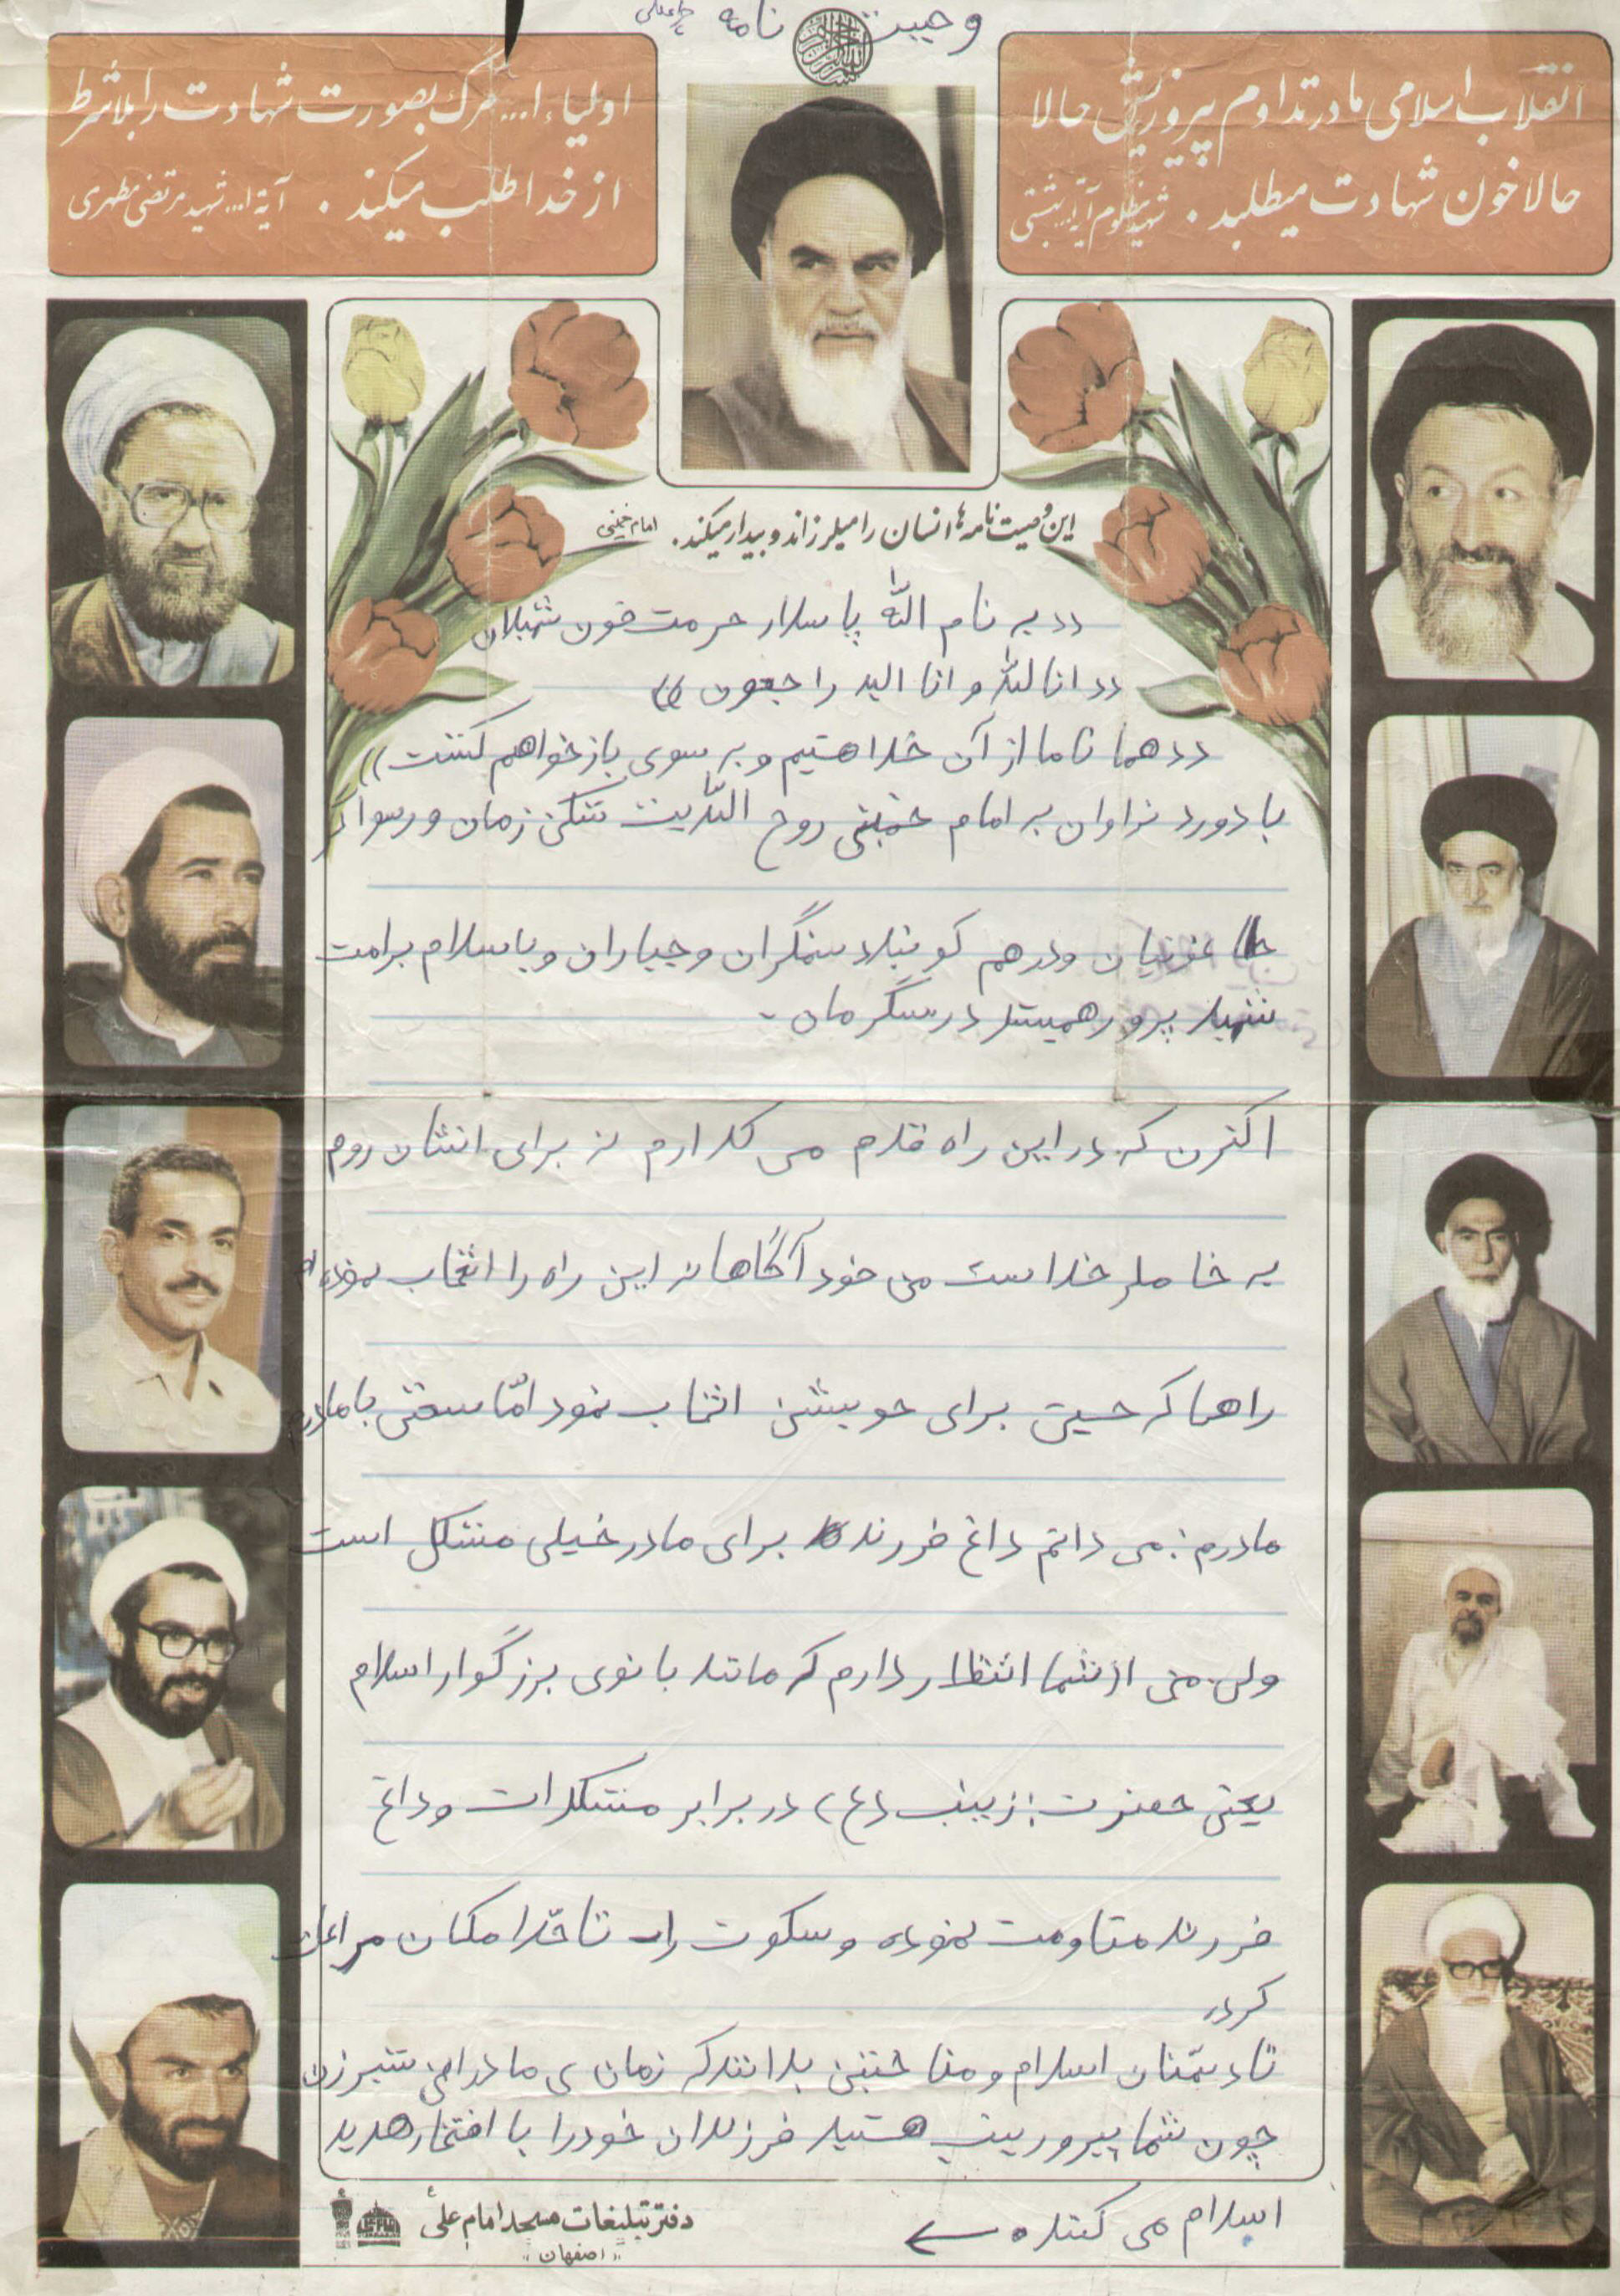 وصیت نامه
انقلاب اسلامی ما در تداوم پیروزیش حالا
حالا خون شهادت میطلبد . شهید مظلوم آیة ا... بهشتی
اولیاء ا... مرگ بصورت شهادت را بلاشرط
از خدا طلب میکند . آیة ا... شهید مرتضی مطهری
این وصیت نامه ها انسان را میلرزاند و بیدار میکند. امام خمینی
((به نام الله پاسدار حرمت خون شهیدان
((انا لله و انا الیه راجعون))
((همانا ما از آن خدا هستیم و به سوی باز خواهم گشت))
با دورد فراوان به امام خمینی روح الله بت شکن زمان و رسوا گر
طاغوتیان و درهم کوبنده ستمگران و جباران و با سلام بر امت
شهید پرور همیشه در سنگرمان .
اکنون که در این راه قدم می گذارم نه برای انسان روم
به خاطر خداست من خود آگاهانه این راه را انتخاب نموده ام
راهی که حسین برای خویشتن انتخاب نمود امّا سخنی با مادرم
مادرم: می دانم داغ فرزند برای مادر خیلی مشکل است
ولی من از شما انتظار دارم که مانند بانوی بزرگوار اسلام
یعنی حضرت زینب (ع) در برابر مشکلات و داغ
فرزند مقاومت نموده و سکوت را تا حدّ امکان مراعات
کرده
تا دشمنان اسلام و منافقین بدانند که زمان ی مادران شیر زن
چون شما پیرو زینب هستید فرزندان خود را با افتخار هدیه
اسلام می کنند. ←
دفتر تبلیغات مسجد امام علی ع
"اصفهان"